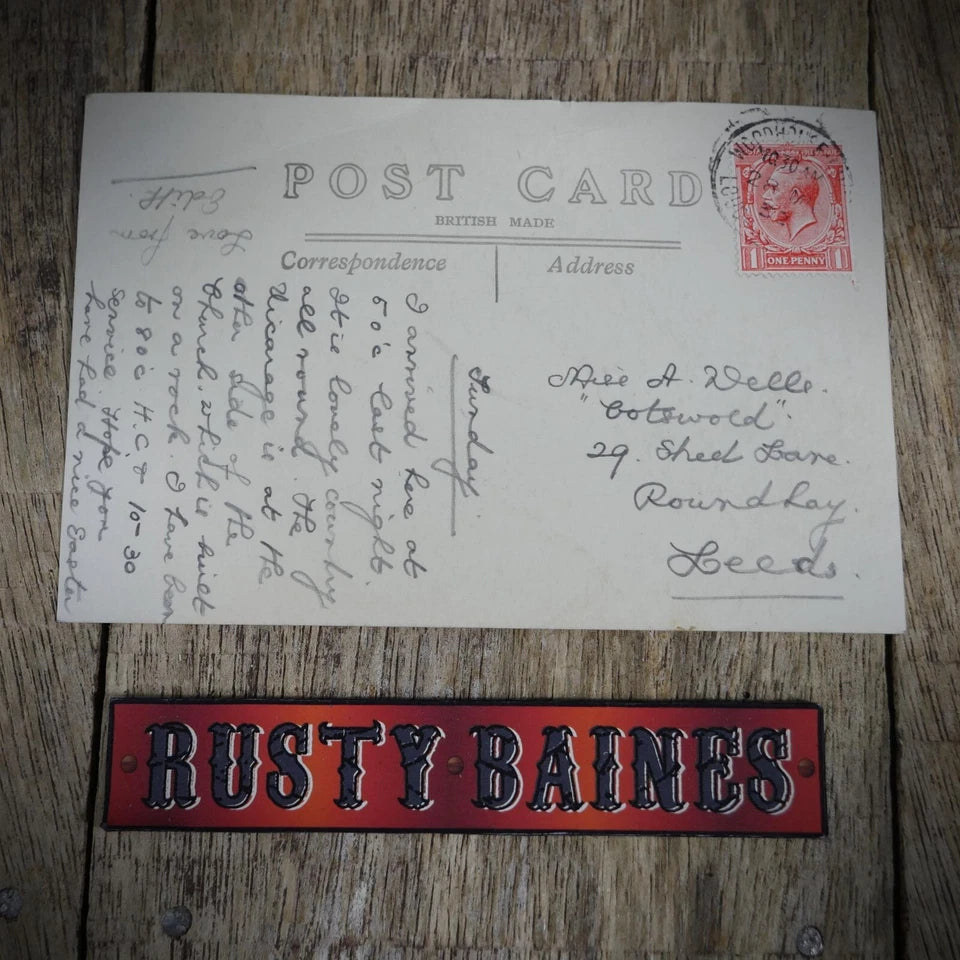 POST CARD
BRITISH MADE
Correspondence
Address
Sunday
I arrived here at
5 o'c last night.
It is lovely country
all round. The
Vicarage is at the
other side of the
Church. which is built
on a rock. I have been
to 8 o'c H.C. & 10-30
Service. Hope you
have had a nice Easter
Love from
Edith.
Miss A. Wells.
"Cotswold".
29. Lane.
Roundhay.
Leeds.
WOODHOUSE
1 ONE PENNY 1
RUSTY BAINES